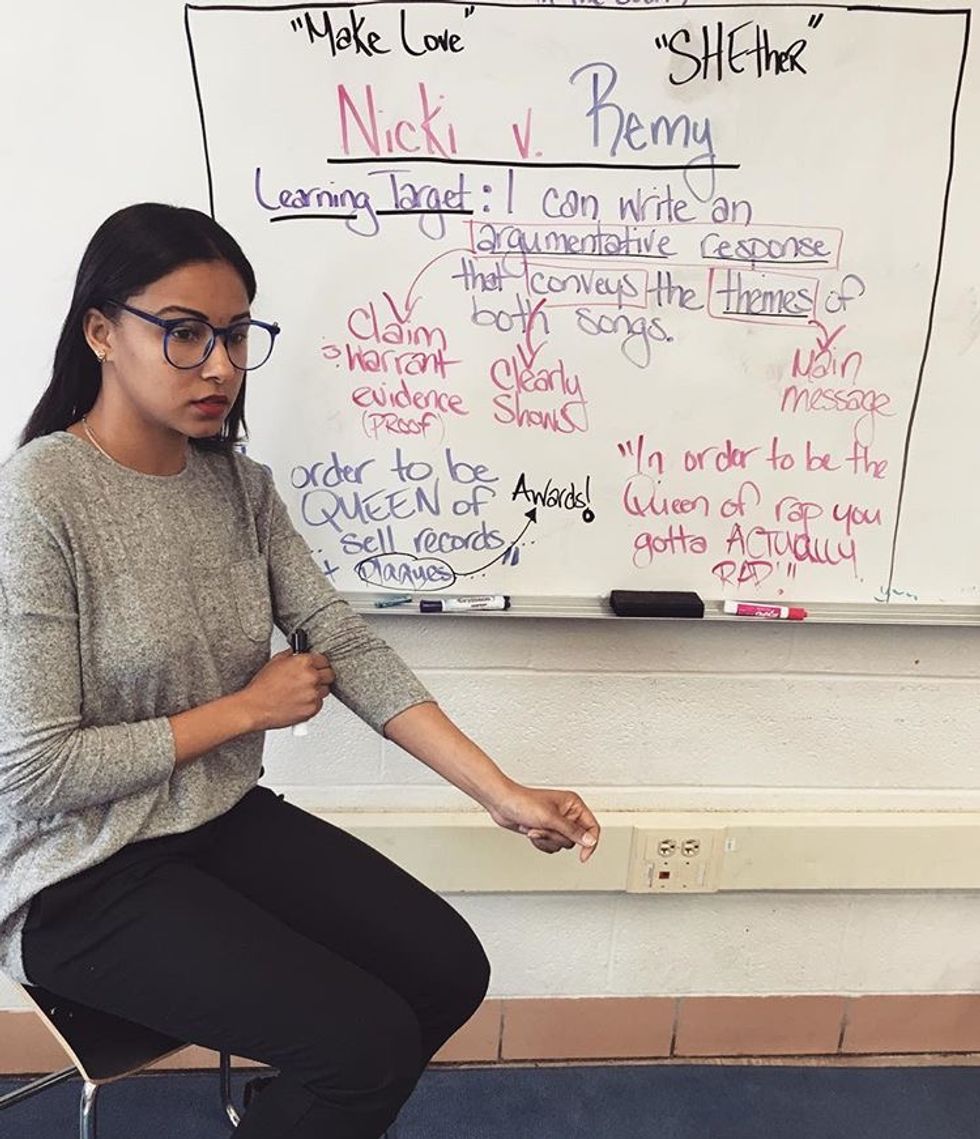 "Make Love"
"SHEther"
Nicki v. Remy
Learning Target: I can write an
argumentative response
that conveys the themes of
both songs.
Claim
warrant
evidence
(PROOF)
Clearly
Shows
Main
message
order to be
QUEEN of
sell records...
+ plaques..."
Awards!
"In order to be the
Queen of rap you
gotta ACTUALLY
RAP!"